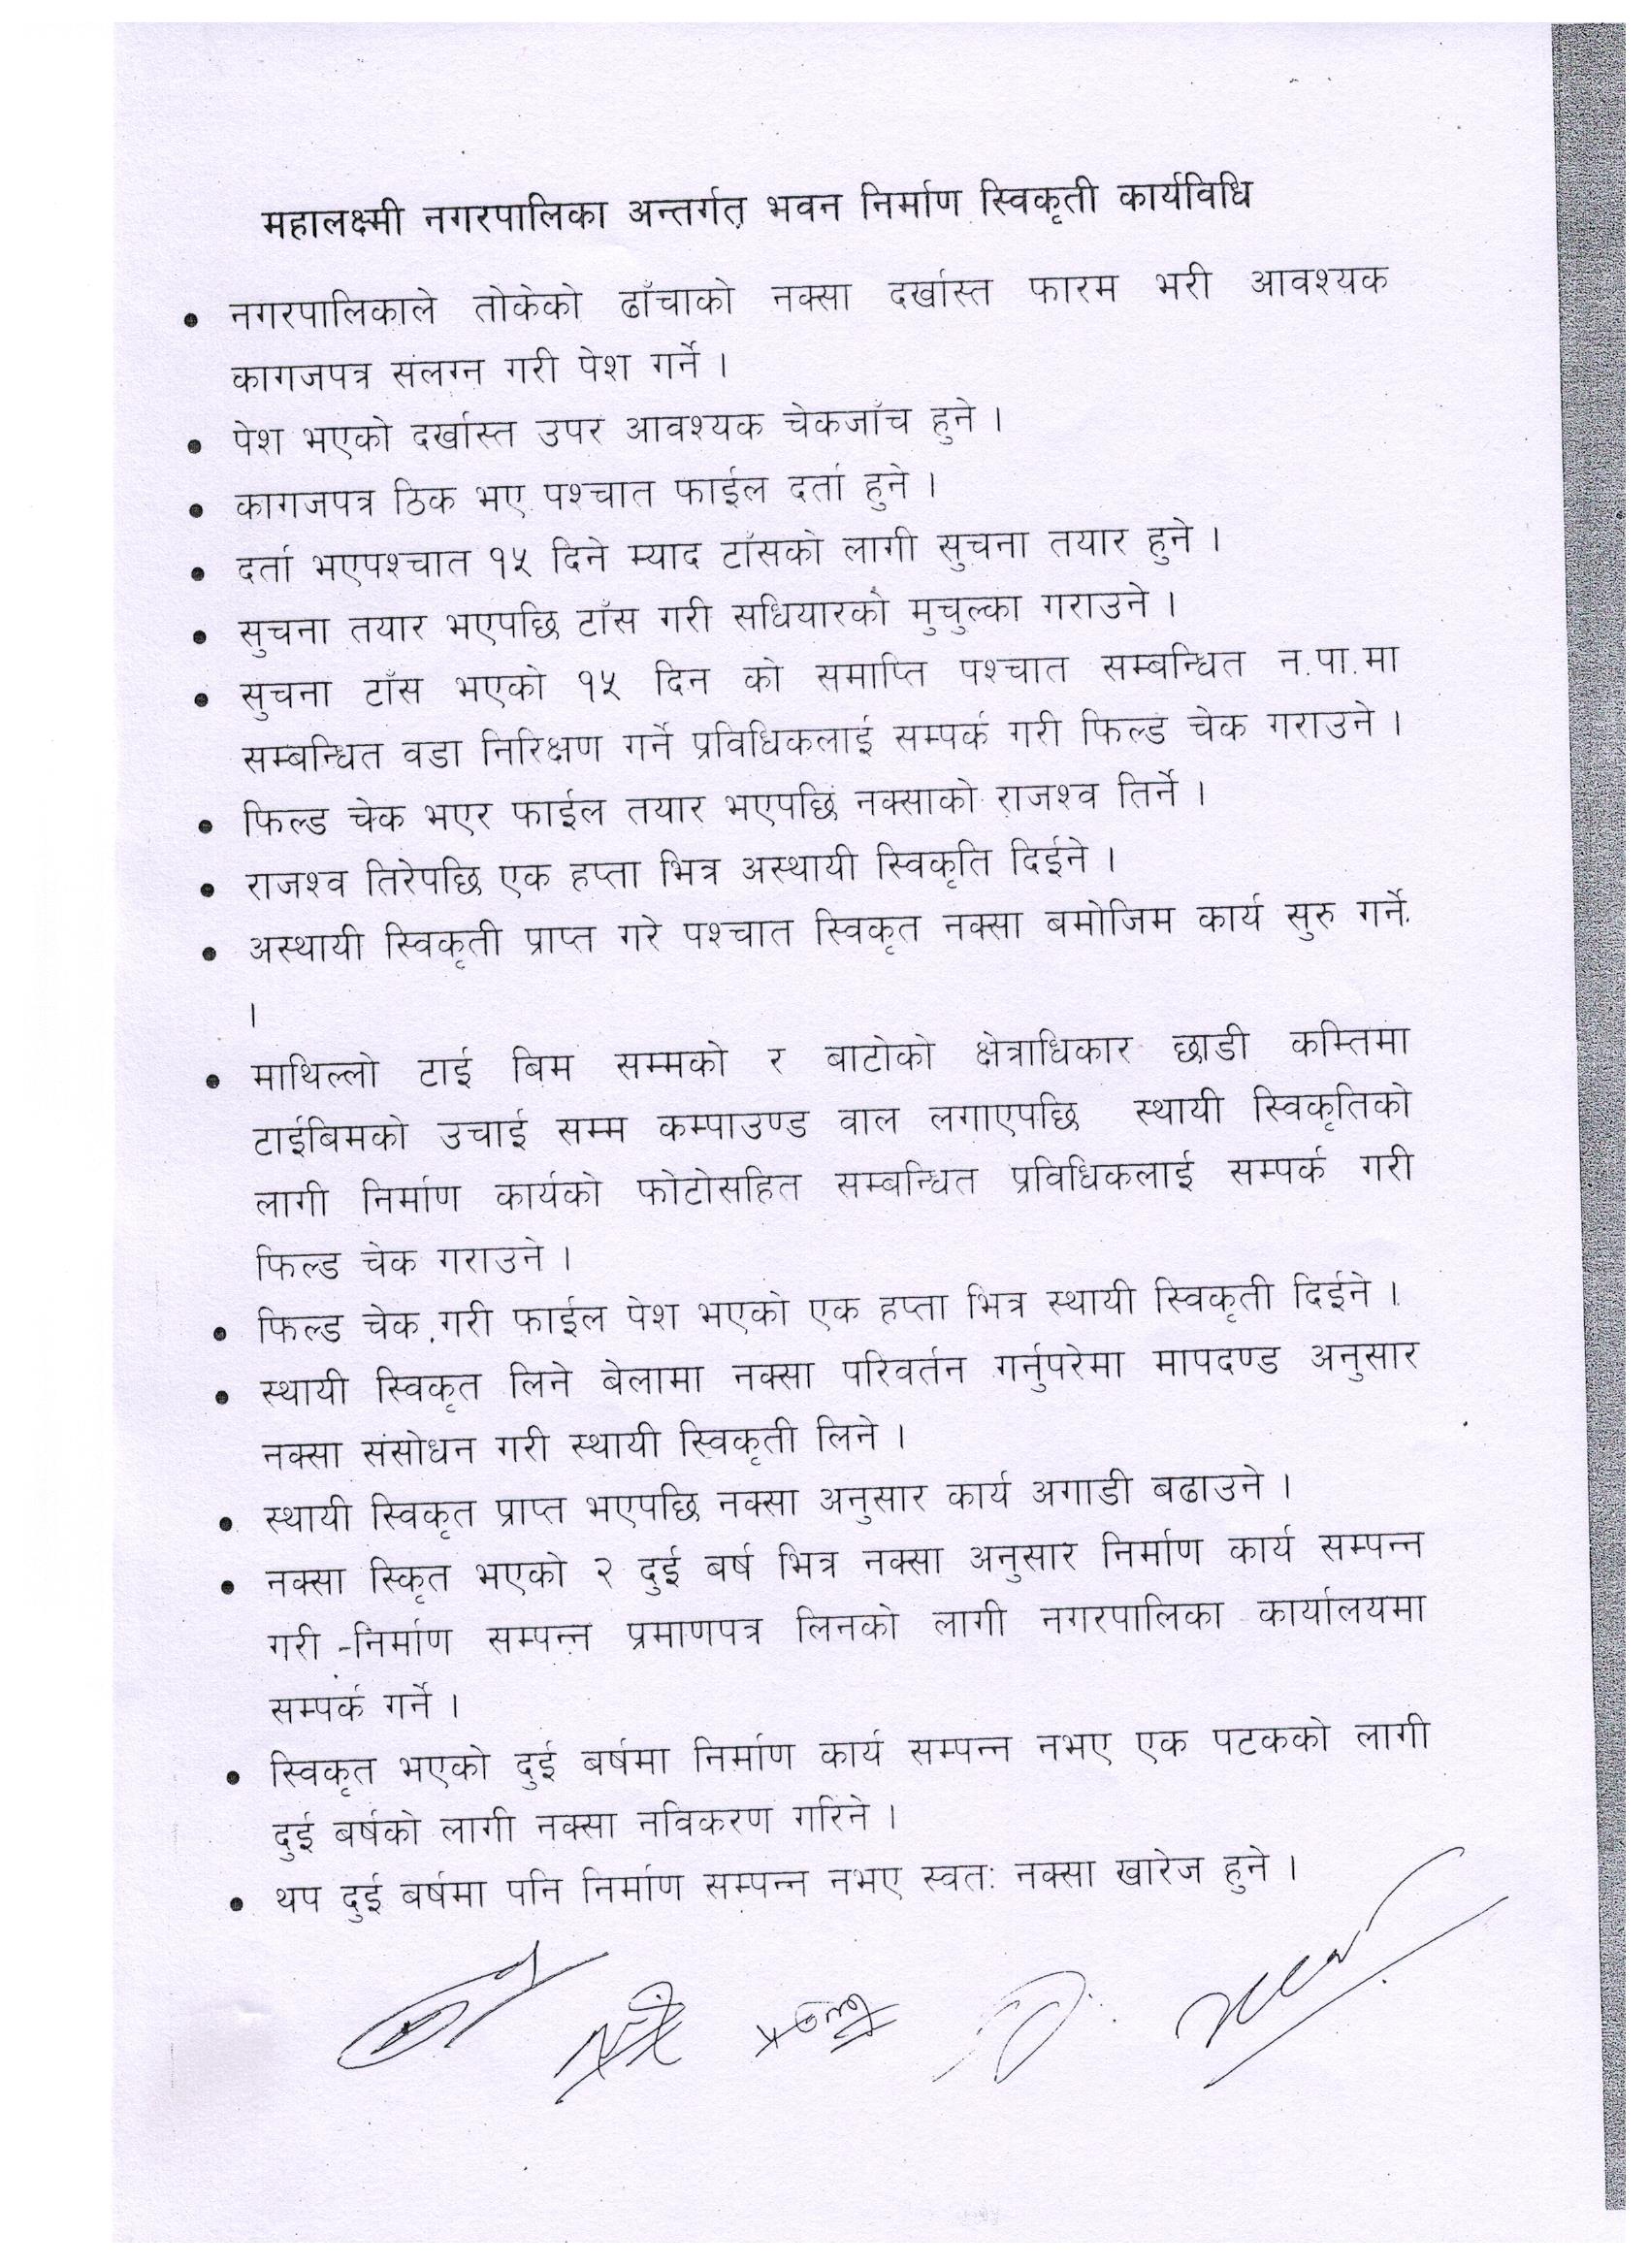 महालक्ष्मी नगरपालिका अन्तर्गत भवन निर्माण स्विकृती कार्यविधि
• नगरपालिकाले तोकेको ढाँचाको नक्सा दर्खास्त फारम भरी आवश्यक
कागजपत्र संलग्न गरी पेश गर्ने ।
• पेश भएको दर्खास्त उपर आवश्यक चेकजाँच हुने ।
• कागजपत्र ठिक भए पश्चात फाईल दर्ता हुने ।
• दर्ता भएपश्चात १५ दिने म्याद टाँसको लागी सुचना तयार हुने ।
• सुचना तयार भएपछि टाँस गरी सधियारको मुचुल्का गराउने ।
• सुचना टाँस भएको १५ दिन को समाप्ति पश्चात सम्बन्धित न.पा.मा
सम्बन्धित वडा निरिक्षण गर्ने प्रविधिकलाई सम्पर्क गरी फिल्ड चेक गराउने ।
• फिल्ड चेक भएर फाईल तयार भएपछि नक्साको राजश्व तिर्ने ।
• राजश्व तिरेपछि एक हप्ता भित्र अस्थायी स्विकृति दिईने ।
• अस्थायी स्विकृती प्राप्त गरे पश्चात स्विकृत नक्सा बमोजिम कार्य सुरु गर्ने
।
• माथिल्लो टाई बिम सम्मको र बाटोको क्षेत्राधिकार छाडी कम्तिमा
टाईबिमको उचाई सम्म कम्पाउण्ड वाल लगाएपछि स्थायी स्विकृतिको
लागी निर्माण कार्यको फोटोसहित सम्बन्धित प्रविधिकलाई सम्पर्क गरी
फिल्ड चेक गराउने ।
• फिल्ड चेक गरी फाईल पेश भएको एक हप्ता भित्र स्थायी स्विकृती दिईने ।
• स्थायी स्विकृत लिने बेलामा नक्सा परिवर्तन गर्नुपरेमा मापदण्ड अनुसार
नक्सा संसोधन गरी स्थायी स्विकृती लिने ।
• स्थायी स्विकृत प्राप्त भएपछि नक्सा अनुसार कार्य अगाडी बढाउने ।
• नक्सा स्किृत भएको २ दुई बर्ष भित्र नक्सा अनुसार निर्माण कार्य सम्पन्न
गरी -निर्माण सम्पन्न प्रमाणपत्र लिनको लागी नगरपालिका कार्यालयमा
सम्पर्क गर्ने ।
• स्विकृत भएको दुई बर्षमा निर्माण कार्य सम्पन्न नभए एक पटकको लागी
दुई बर्षको लागी नक्सा नविकरण गरिने ।
• थप दुई बर्षमा पनि निर्माण सम्पन्न नभए स्वतः नक्सा खारेज हुने ।